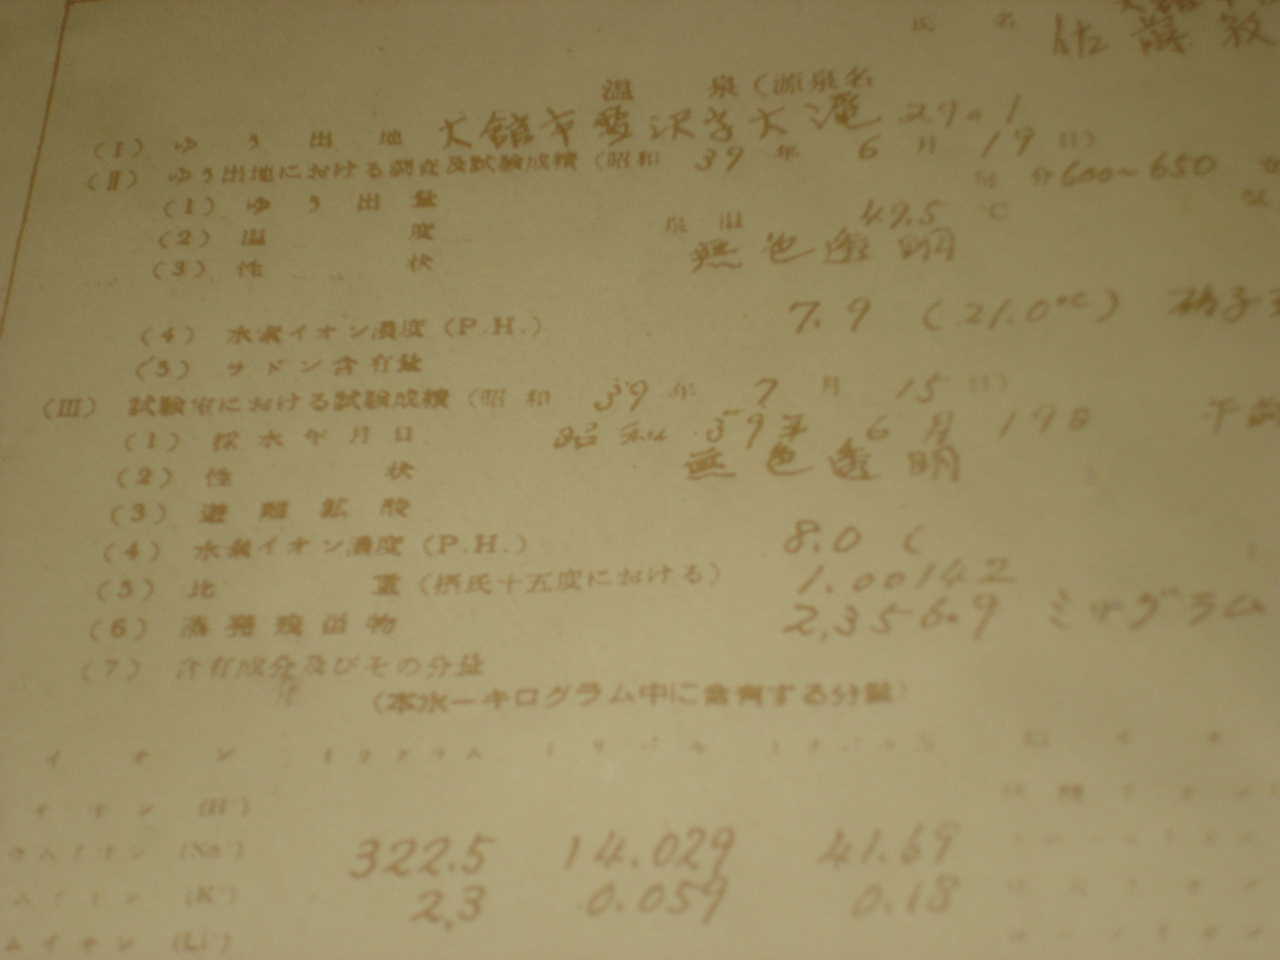 氏 名 佐藤敦
温 泉(源泉名
(I) ゆ う 出 地 大館市曽沢字大滝 29の1
(II) ゆう出地における調査及試験成績(昭和 39 年 6 月 19 日)
(1) ゆ う 出 量 毎 分 600~650
(2) 温 度 泉 温 49.5 ℃
(3) 性 状 無色透明
(4) 水素イオン濃度(P.H.) 7.9 (21.0℃) 硝子
(5) ラドン含有量
(III) 試験室における試験成績(昭和 39 年 7 月 15 日)
(1) 採水年月日 昭和 39年 6月 19日 午前
(2) 性 状 無色透明
(3) 遊離鉱酸
(4) 水素イオン濃度(P.H.) 8.0 (
(5) 比 重(摂氏十五度における) 1.00142
(6) 蒸発残留物 2,356.9 ミリグラム
(7) 含有成分及びその分量
(本水一キログラム中に含有する分量)
イ オ ン ミリグラム ミリバル ミリバル%
イオン (H˙)
ウムイオン (Na˙) 322.5 14.029 41.69
ムイオン (K˙) 2.3 0.059 0.18
ムイオン (Li˙)